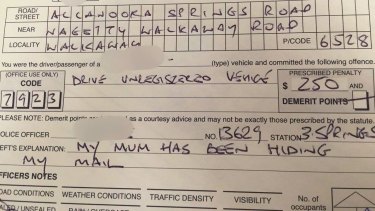 ROAD/ STREET ALLANOOKA SPRINGS ROAD
NEAR NANGETTY WALKAWAY ROAD
LOCALITY WALKAWAY P/CODE 6528
You were the driver/passenger of a (type) vehicle and committed the following offence.
(OFFICE USE ONLY) CODE 7923 DRIVE UNREGISTERED VEHICLE PRESCRIBED PENALTY $ 250 AND
DEMERIT POINTS
PLEASE NOTE: Demerit points are as a courtesy advice and may not exactly those prescribed by the statute.
POLICE OFFICER NO. 13629 STATION 3 SPRINGS
EFT'S EXPLANATION: MY MUM HAS BEEN HIDING
MY MAIL
OFFICERS NOTES
ROAD CONDITIONS WEATHER CONDITIONS TRAFFIC DENSITY VISIBILITY No. of occupants